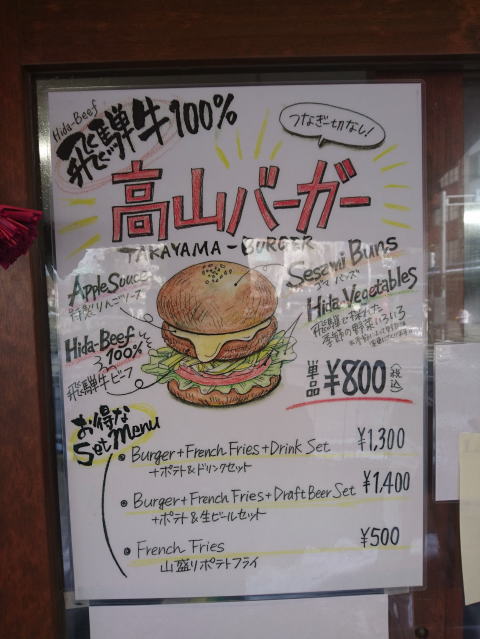 Hida-Beef
飛騨牛100%
つなぎ一切なし!
高山バーガー
TAKAYAMA-BURGER
Apple Souce
特製りんごソース
Sesami Buns
ゴマバンズ
Hida-Vegetables
飛騨で採れた
季節の野菜いろいろ
Hida-Beef
100%
飛騨牛ビーフ
単品 ¥800 税込
お得な
Set Menu
Burger+French Fries+Drink Set ¥1,300
+ポテト&ドリンクセット
Burger+French Fries+Draft Beer Set ¥1,400
+ポテト&生ビールセット
French Fries ¥500
山盛りポテトフライ